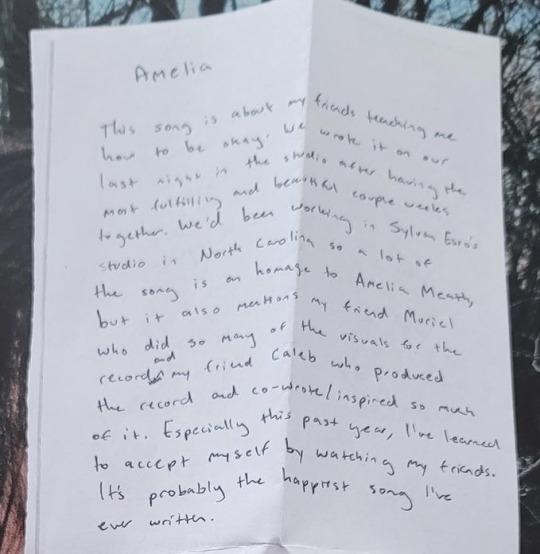 Amelia
This song is about my friends teaching me
how to be okay. We wrote it on our
last night in the studio after having the
most fulfilling and beautiful couple weeks
together. We'd been working in Sylvan Esso's
studio in North Carolina so a lot of
the song is an homage to Amelia Meath,
but it also mentions my friend Muriel
who did so many of the visuals for the
record and my friend Caleb who produced
the record and co-wrote/inspired so much
of it. Especially this past year, I've learned
to accept myself by watching my friends.
It's probably the happiest song I've
ever written.